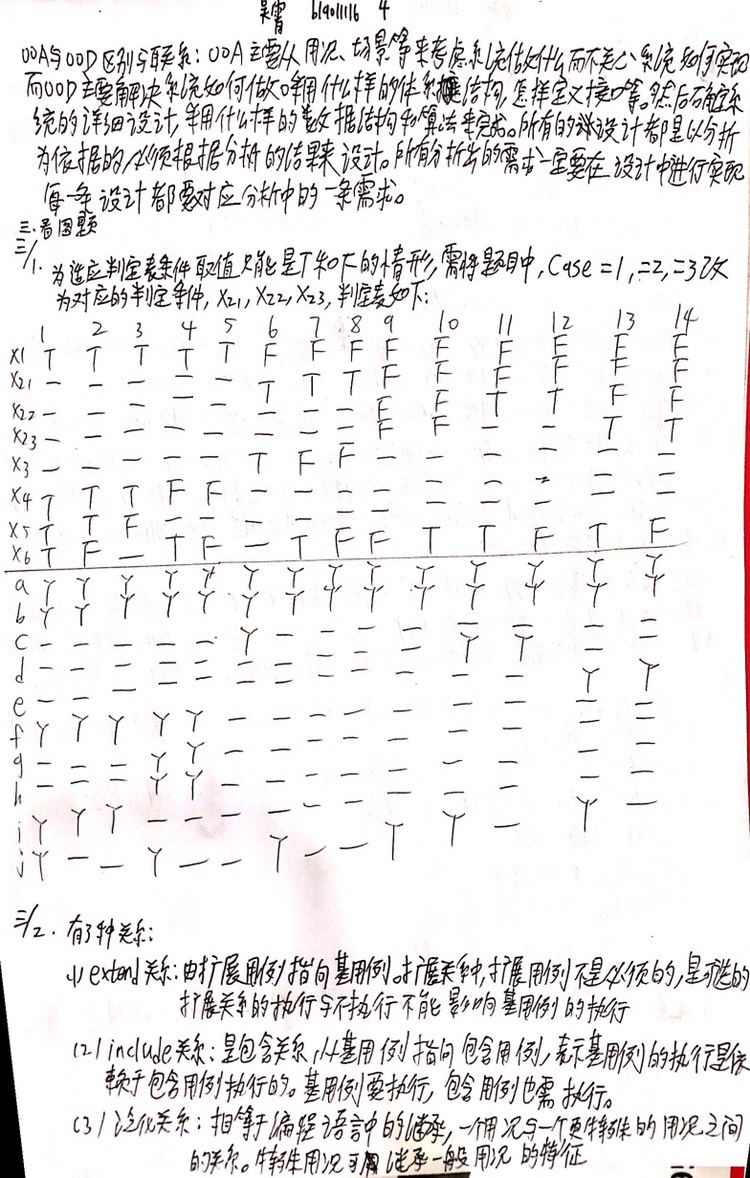 吴霄 b19011116 4
OOA与OOD区别与联系：OOA主要从用况、场景等来考虑系统做什么而不关心系统如何实现
而OOD主要解决系统如何做。采用什么样的体系结构，怎样定义接口等。然后确定系
统的详细设计，采用什么样的数据结构和算法来完成。所有的设计都是以分析
为依据的，必须根据分析的结果来设计。所有分析出的需求一定要在设计中进行实现
每一条设计都要对应分析中的一条需求。
三.看图题
三/1. 为适应判定表条件取值只能是T和F的情形，需将题目中，Case=1,=2,=3改
为对应的判定条件，X21,X22,X23,判定表如下：
1 2 3 4 5 6 7 8 9 10 11 12 13 14
X1 T T T T T F F F F F F F F F
X21 - - - - - T T T F F F F F F
X22 - - - - - - - - F F T T F F
X23 - - - - - - - - F F - - T T
X3 - - - - - T F F - - - - - -
X4 T T T F F - - - - - - - - -
X5 T T F - - - - - - - - - - -
X6 T F - T F - T F F T T F T F
a Y Y Y Y Y Y Y Y Y Y Y Y Y Y
b Y Y Y Y Y Y Y Y Y Y Y Y Y Y
c - - - - - Y - - - - - - - -
d - - - - - - - - - - Y Y - -
e - - - - - - - - - - - - Y Y
f Y Y Y Y Y - - - - - - - - -
g - - - Y Y - - - - - - - - -
h - - - Y Y - - - - - - - - -
i Y Y Y - - - - - - - - - - -
j Y - - Y - - Y - - Y Y - Y -
三/2. 有3种关系：
(1) extend关系：由扩展用例指向基用例。扩展关系中，扩展用例不是必须的，是可选的
扩展关系的执行与不执行不能影响基用例的执行
(2) include关系：是包含关系，从基用例指向包含用例，表示基用例的执行是依
赖于包含用例执行的。基用例要执行，包含用例也需执行。
(3) 泛化关系：相等于编程语言中的继承，一个用况与一个更特殊的用况之间
的关系。特殊用况可继承一般用况的特征